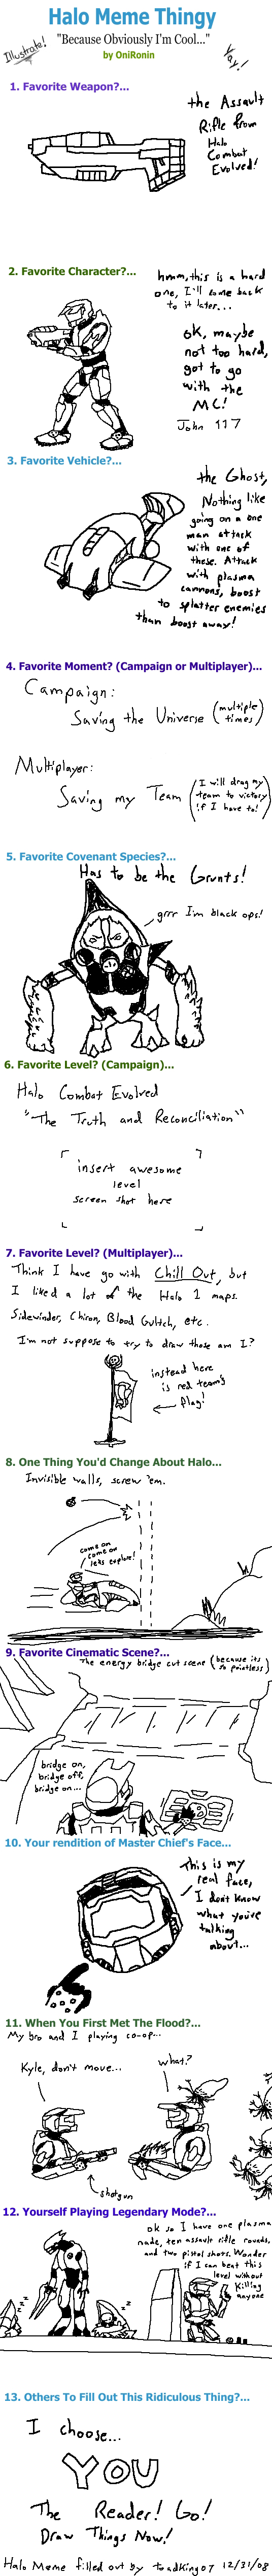 Halo Meme Thingy
Illustrate!
"Because Obviously I'm Cool..."
Yay!
by OniRonin
1. Favorite Weapon?...
the Assault
Rifle from
Halo
Combat
Evolved!
2. Favorite Character?...
hmm, this is a hard
one, I'll come back
to it later...
ok, maybe
not too hard,
got to go
with the
MC!
John 117
3. Favorite Vehicle?...
the Ghost,
Nothing like
going on a one
man attack
with one of
these. Attack
with plasma
cannons, boost
to splatter enemies
than boost away!
4. Favorite Moment? (Campaign or Multiplayer)...
Campaign:
Saving the Universe (multiple
times)
Multiplayer:
Saving my Team (I will drag my
team to victory
if I have to!)
5. Favorite Covenant Species?...
Has to be the Grunts!
grrr I'm black ops!
6. Favorite Level? (Campaign)...
Halo Combat Evolved
"The Truth and Reconciliation"
insert awesome
level
screen shot here
7. Favorite Level? (Multiplayer)...
Think I have go with Chill Out, but
I liked a lot of the Halo 1 maps.
Sidewinder, Chiron, Blood Gultch, etc.
I'm not suppose to try to draw those am I?
instead here
is red team's
flag!
8. One Thing You'd Change About Halo...
Invisible walls, screw 'em.
come on
come on
lets explore!
9. Favorite Cinematic Scene?...
The energy bridge cut scene (because its
so pointless)
bridge on,
bridge off,
bridge on...
10. Your rendition of Master Chief's Face...
This is my
real face,
I don't know
what you're
talking
about...
11. When You First Met The Flood?...
My bro and I playing co-op...
Kyle, don't move...
what?
shotgun
12. Yourself Playing Legendary Mode?...
ok so I have one plasma
nade, ten assault rifle rounds,
and two pistol shots. Wonder
if I can beat this
level without
killing
anyone
z z
z z
13. Others To Fill Out This Ridiculous Thing?...
I choose...
YOU
The Reader! Go!
Draw Things Now!
Halo Meme filled out by toadking07 12/31/08